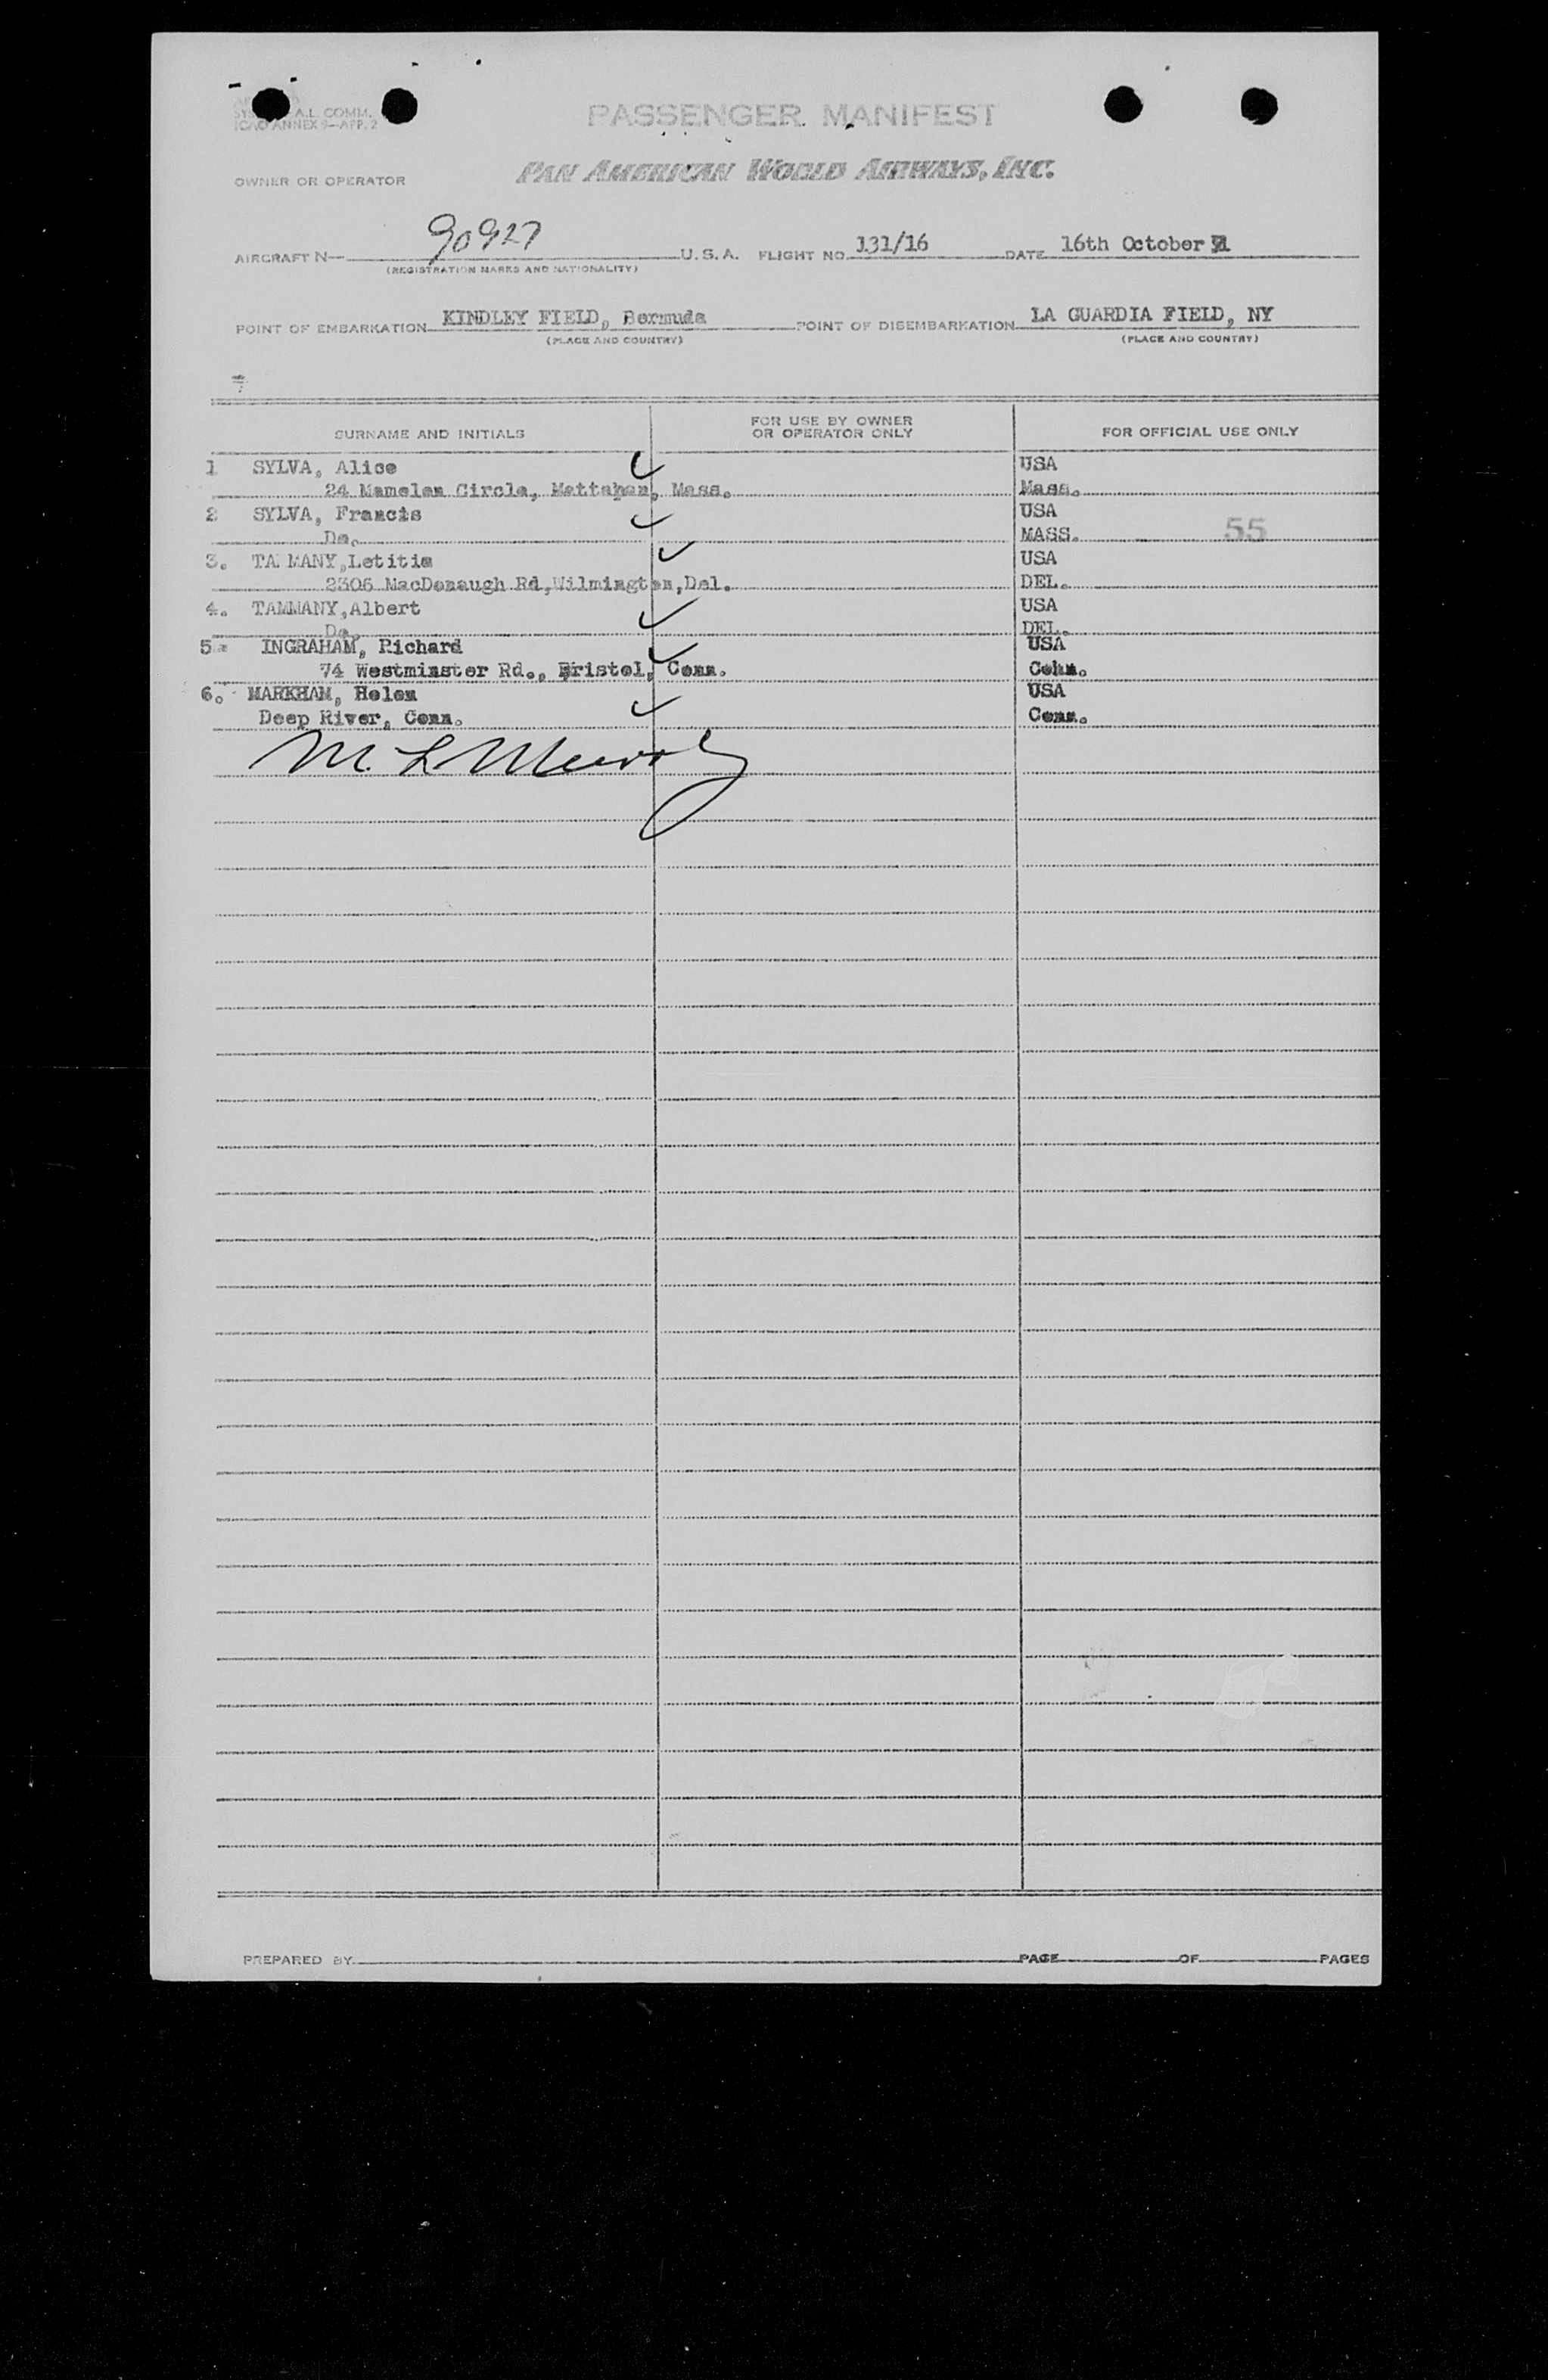 A.L. COMM.
ICAO ANNEX 9—APP. 2
PASSENGER MANIFEST
OWNER OR OPERATOR PAN AMERICAN WORLD AIRWAYS, INC.
AIRCRAFT N— 90927 U. S. A. FLIGHT NO. 131/16 DATE 16th October
(REGISTRATION MARKS AND NATIONALITY)
POINT OF EMBARKATION KINDLEY FIELD, Bermuda POINT OF DISEMBARKATION LA GUARDIA FIELD, NY
(PLACE AND COUNTRY) (PLACE AND COUNTRY)
SURNAME AND INITIALS FOR USE BY OWNER OR OPERATOR ONLY FOR OFFICIAL USE ONLY
1 SYLVA, Alice USA
24 Circle, Mass. Mass.
2 SYLVA, Francis USA
Do. MASS. 55
3. TA MANY,Letitia USA
2306 MacDonaugh Rd,Wilmington,Del. DEL.
4. TAMMANY,Albert USA
Do. DEL.
5 INGRAHAM, Richard USA
74 Westminster Rd., Bristol, Conn. Conn.
6. MARKHAM, Helen USA
Deep River, Conn. Conn.
M. L.
PREPARED BY PAGE OF PAGES